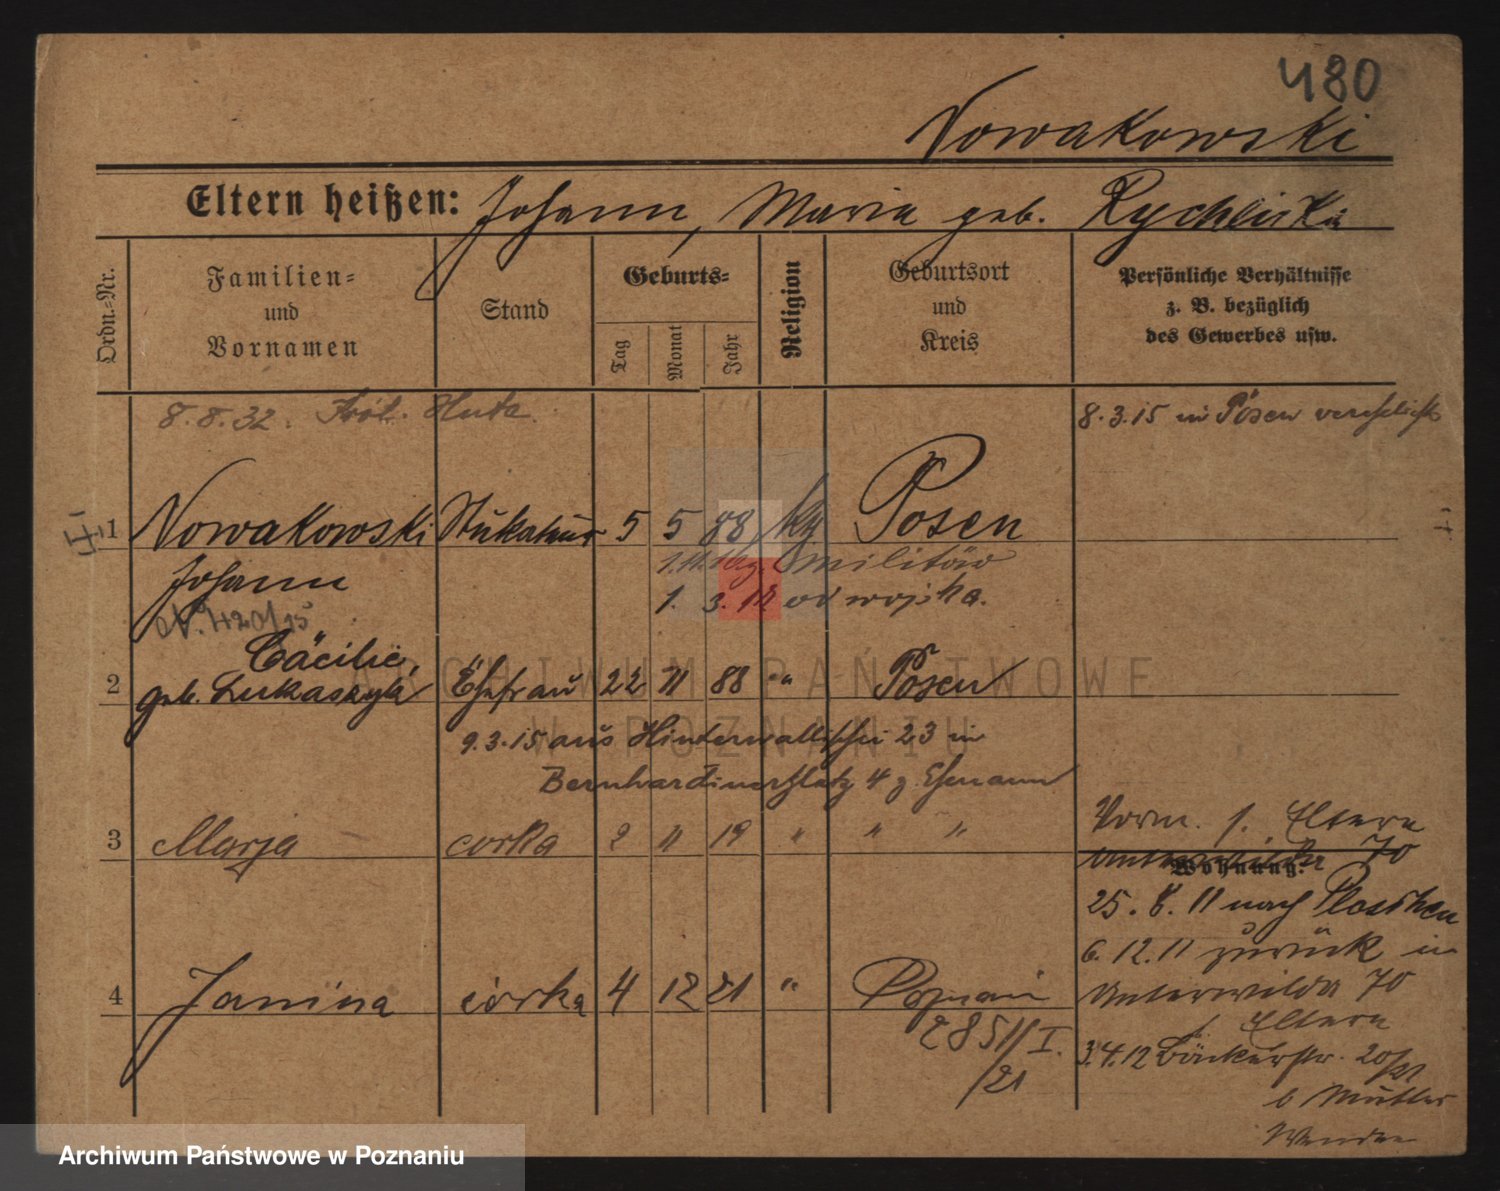 480
Nowakowski
Eltern heißen: Johann, Maria geb. Rychlicka
Ordn.=Nr.
Familien= und Vornamen
Stand
Geburts=
Tag
Monat
Jahr
Religion
Geburtsort und Kreis
Persönliche Verhältnisse
z. B. bezüglich
des Gewerbes usw.
8.8.32. Huta
8.3.15 in Posen verehelicht
1 Nowakowski Stukateur 5 5 88 ky Posen
Johann
militär
1. 3. od wojska.
N. 420/15
Cäcilie,
2 geb. Ehefrau 22 11 88 " Posen
9.3.15 aus Hinterwallischei 23 in
Bernhardinerplatz 4 z. Ehemann
3 Marja corka 2 11 19 " " "
Vorm. f. Eltern
Unterwilda 70
Wohnung:
25. 8. 11 nach
6. 12. 11 zurück in
4 Janina córka 4 12 21 " Poznań
Unterwilda 70
Eltern
2851/I.
/21
3.4.12 Bäckerstr.
b Mutter
ARCHIWUM PAŃSTWOWE
W POZNANIU
Archiwum Państwowe w Poznaniu